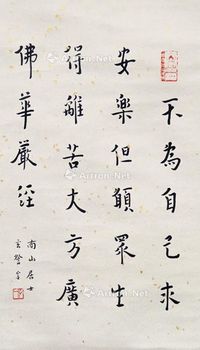 不為自己求
安樂但願眾生
得離苦大方廣
佛華嚴經
南山居士
Artron.Net